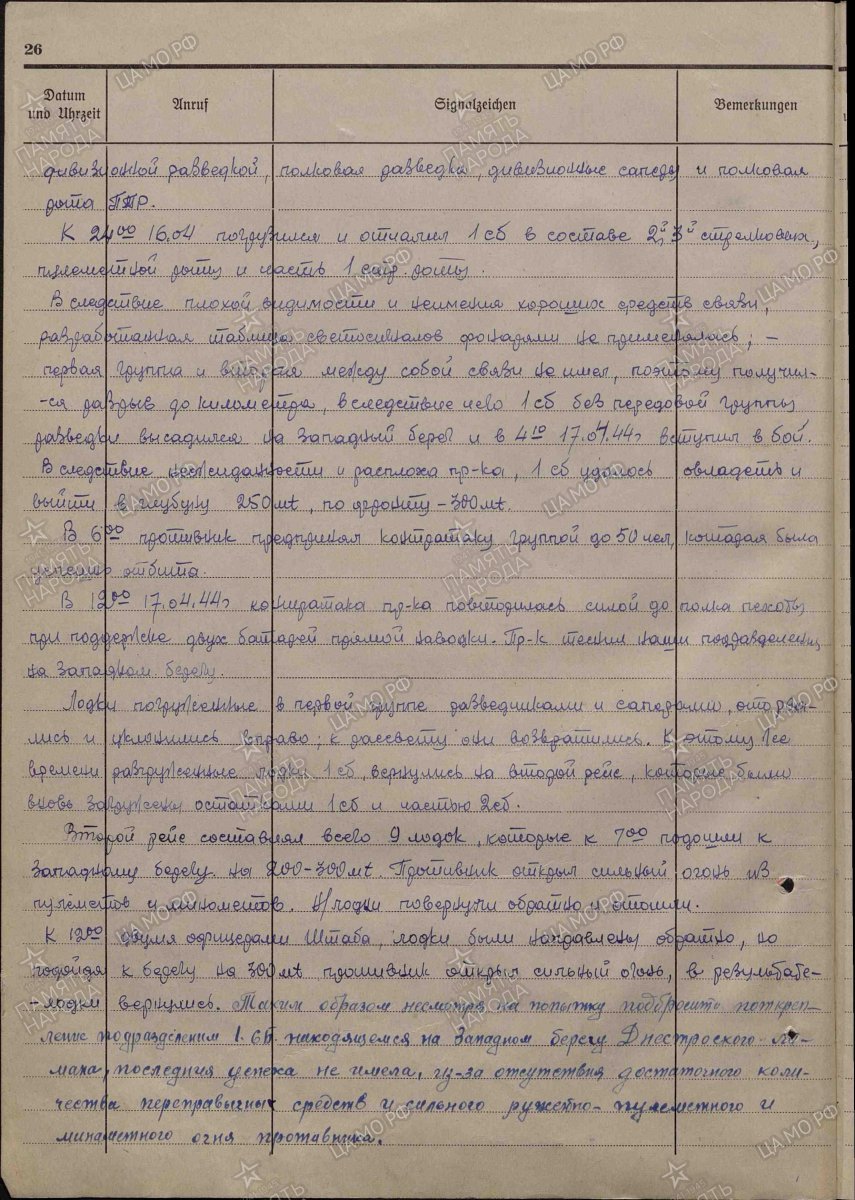 26
Datum und Uhrzeit
Anruf
Signalzeichen
Bemerkungen
дивизионной разведкой, полковая разведка, дивизионные саперы и полковая
рота ПТР.
К 24⁰⁰ 16.04 погрузился и отчалил 1 сб в составе 2й, 3й стрелковых,
пулеметной роты и часть 1 сапр. роты.
В следствие плохой видимости и неимения хороших средств связи,
разработанная таблица светосигналов фонарями не применялась; –
первая группа и вторая между собой связи не имел, поэтому получил-
-ся разрыв до километра, в следствие чего 1 сб без передовой группы
разведки высадился на Западный берег и в 4¹⁰ 17.04.44г вступил в бой.
В следствие неожиданности и расплоха пр-ка, 1 сб удалось овладеть и
выйти в глубину 250 мt, по фронту – 300 мt.
В 6⁰⁰ противник предпринял контратаку группой до 50 чел, которая была
успешно отбита.
В 12⁰⁰ 17.04.44г контратака пр-ка повторилась силой до полка пехоты
при поддержке двух батарей прямой наводки. Пр-к теснил наши подразделения
на Западном берегу.
Лодки погруженные в первой группе разведчиками и саперами, оторва-
лись и уклонились вправо; к рассвету они возвратились. К этому же
времени разгруженные лодки 1 сб, вернулись на второй рейс, которые были
вновь загружены остатками 1 сб и частью 2 сб.
Второй рейс составлял всего 9 лодок, которые к 7⁰⁰ подошли к
Западному берегу на 200-300 мt. Противник открыл сильный огонь из
пулеметов и минометов. Н/лодки повернули обратно и отошли.
К 12⁰⁰ двумя офицерами Штаба, лодки были направлены обратно, но
подойдя к берегу на 300 мt противник открыл сильный огонь, в результате-
-лодки вернулись. Таким образом несмотря на попытку подбросить подкреп-
ление подразделениям 1. сб. находящемся на Западном берегу Днестроского ли-
мана, последния успеха не имела, из-за отсутствия достаточного коли-
чества переправычных средств и сильного ружейно-пулеметного и
минаметного огня противника.
ПАМЯТЬ НАРОДА
ЦАМО РФ